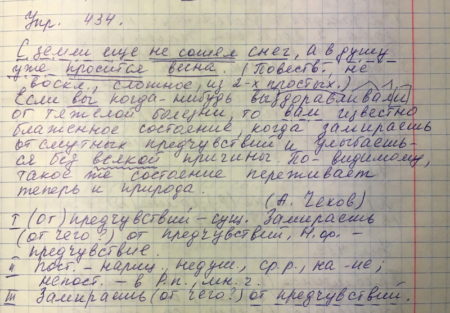 Упр. 434.
С земли ещё не сошёл снег, а в душу
уже просится весна. (Повеств., не
воскл., сложное, из 2-х простых.)
Если вы когда-нибудь выздоравливали
от тяжёлой болезни, то вам известно
блаженное состояние, когда замираешь
от смутных предчувствий и улыбаешь-
ся без всякой причины. По-видимому,
такое же состояние переживает
теперь и природа.
(А. Чехов)
I (От) предчувствий – сущ. Замираешь
(от чего?) от предчувствий, Н.ф. –
предчувствие.
II Пост. – нариц., недуш., ср.р., на -ие;
непост. – в Р.п., мн.ч.
III Замираешь (от чего?) от предчувствий.